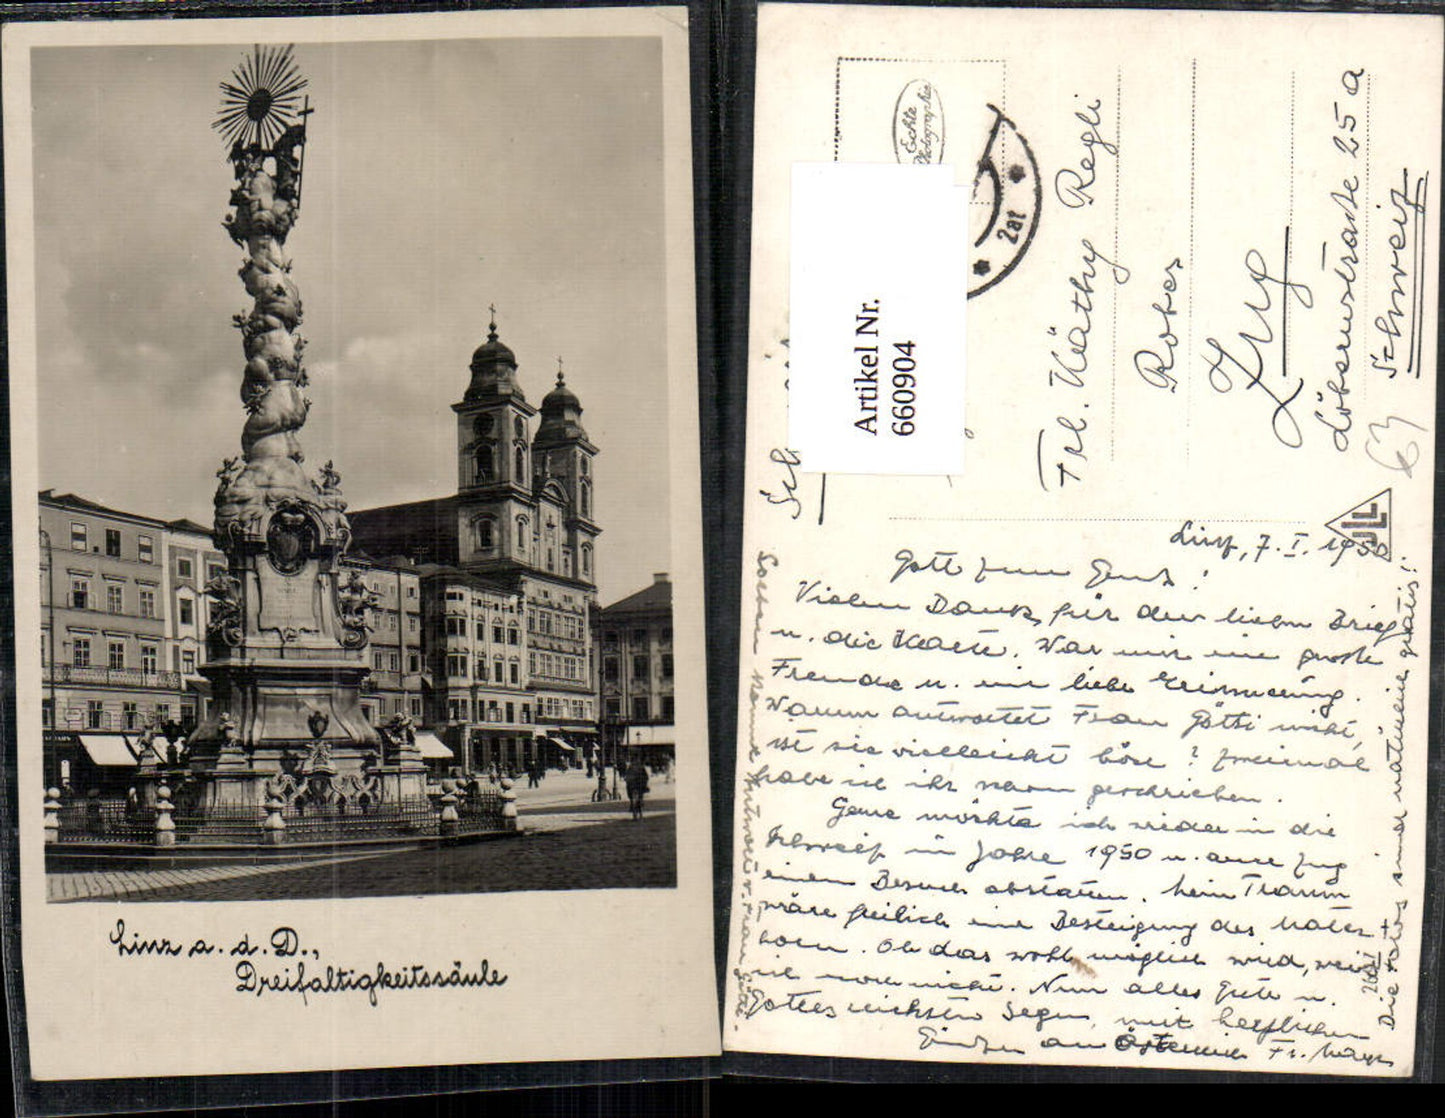 Linz a. d. D.,
Dreifaltigkeitssäule
Echte
Photographie
2at
Artikel Nr.
660904
Frl. Käthy Regli
Zug
Löbernstrasse 25a
Schweiz
63
JLL
Linz, 7. I. 1950
Gott zum Gruß!
Vielen Dank für den lieben Brief
u. die Karte. War mir eine große
Freude u. eine liebe Erinnerung.
Warum antwortet Frau Götti nicht,
ist sie vielleicht böse? Zweimal
habe ich ihr schon geschrieben.
Gerne möchte ich wieder in die
Schweiz im Jahre 1950 u. auch Zug
einen Besuch abstatten. Mein Traum
wäre freilich eine Besteigung des Matter-
horn. Ob das wohl möglich wird, weiß
ich noch nicht. Nun alles Gute u.
Gottes reichsten Segen, mit herzlichen
Grüßen aus Österreich Fr.
Soeben kommt Antwort v. Frau Götti.
Die Fotos sind natürlich gratis!